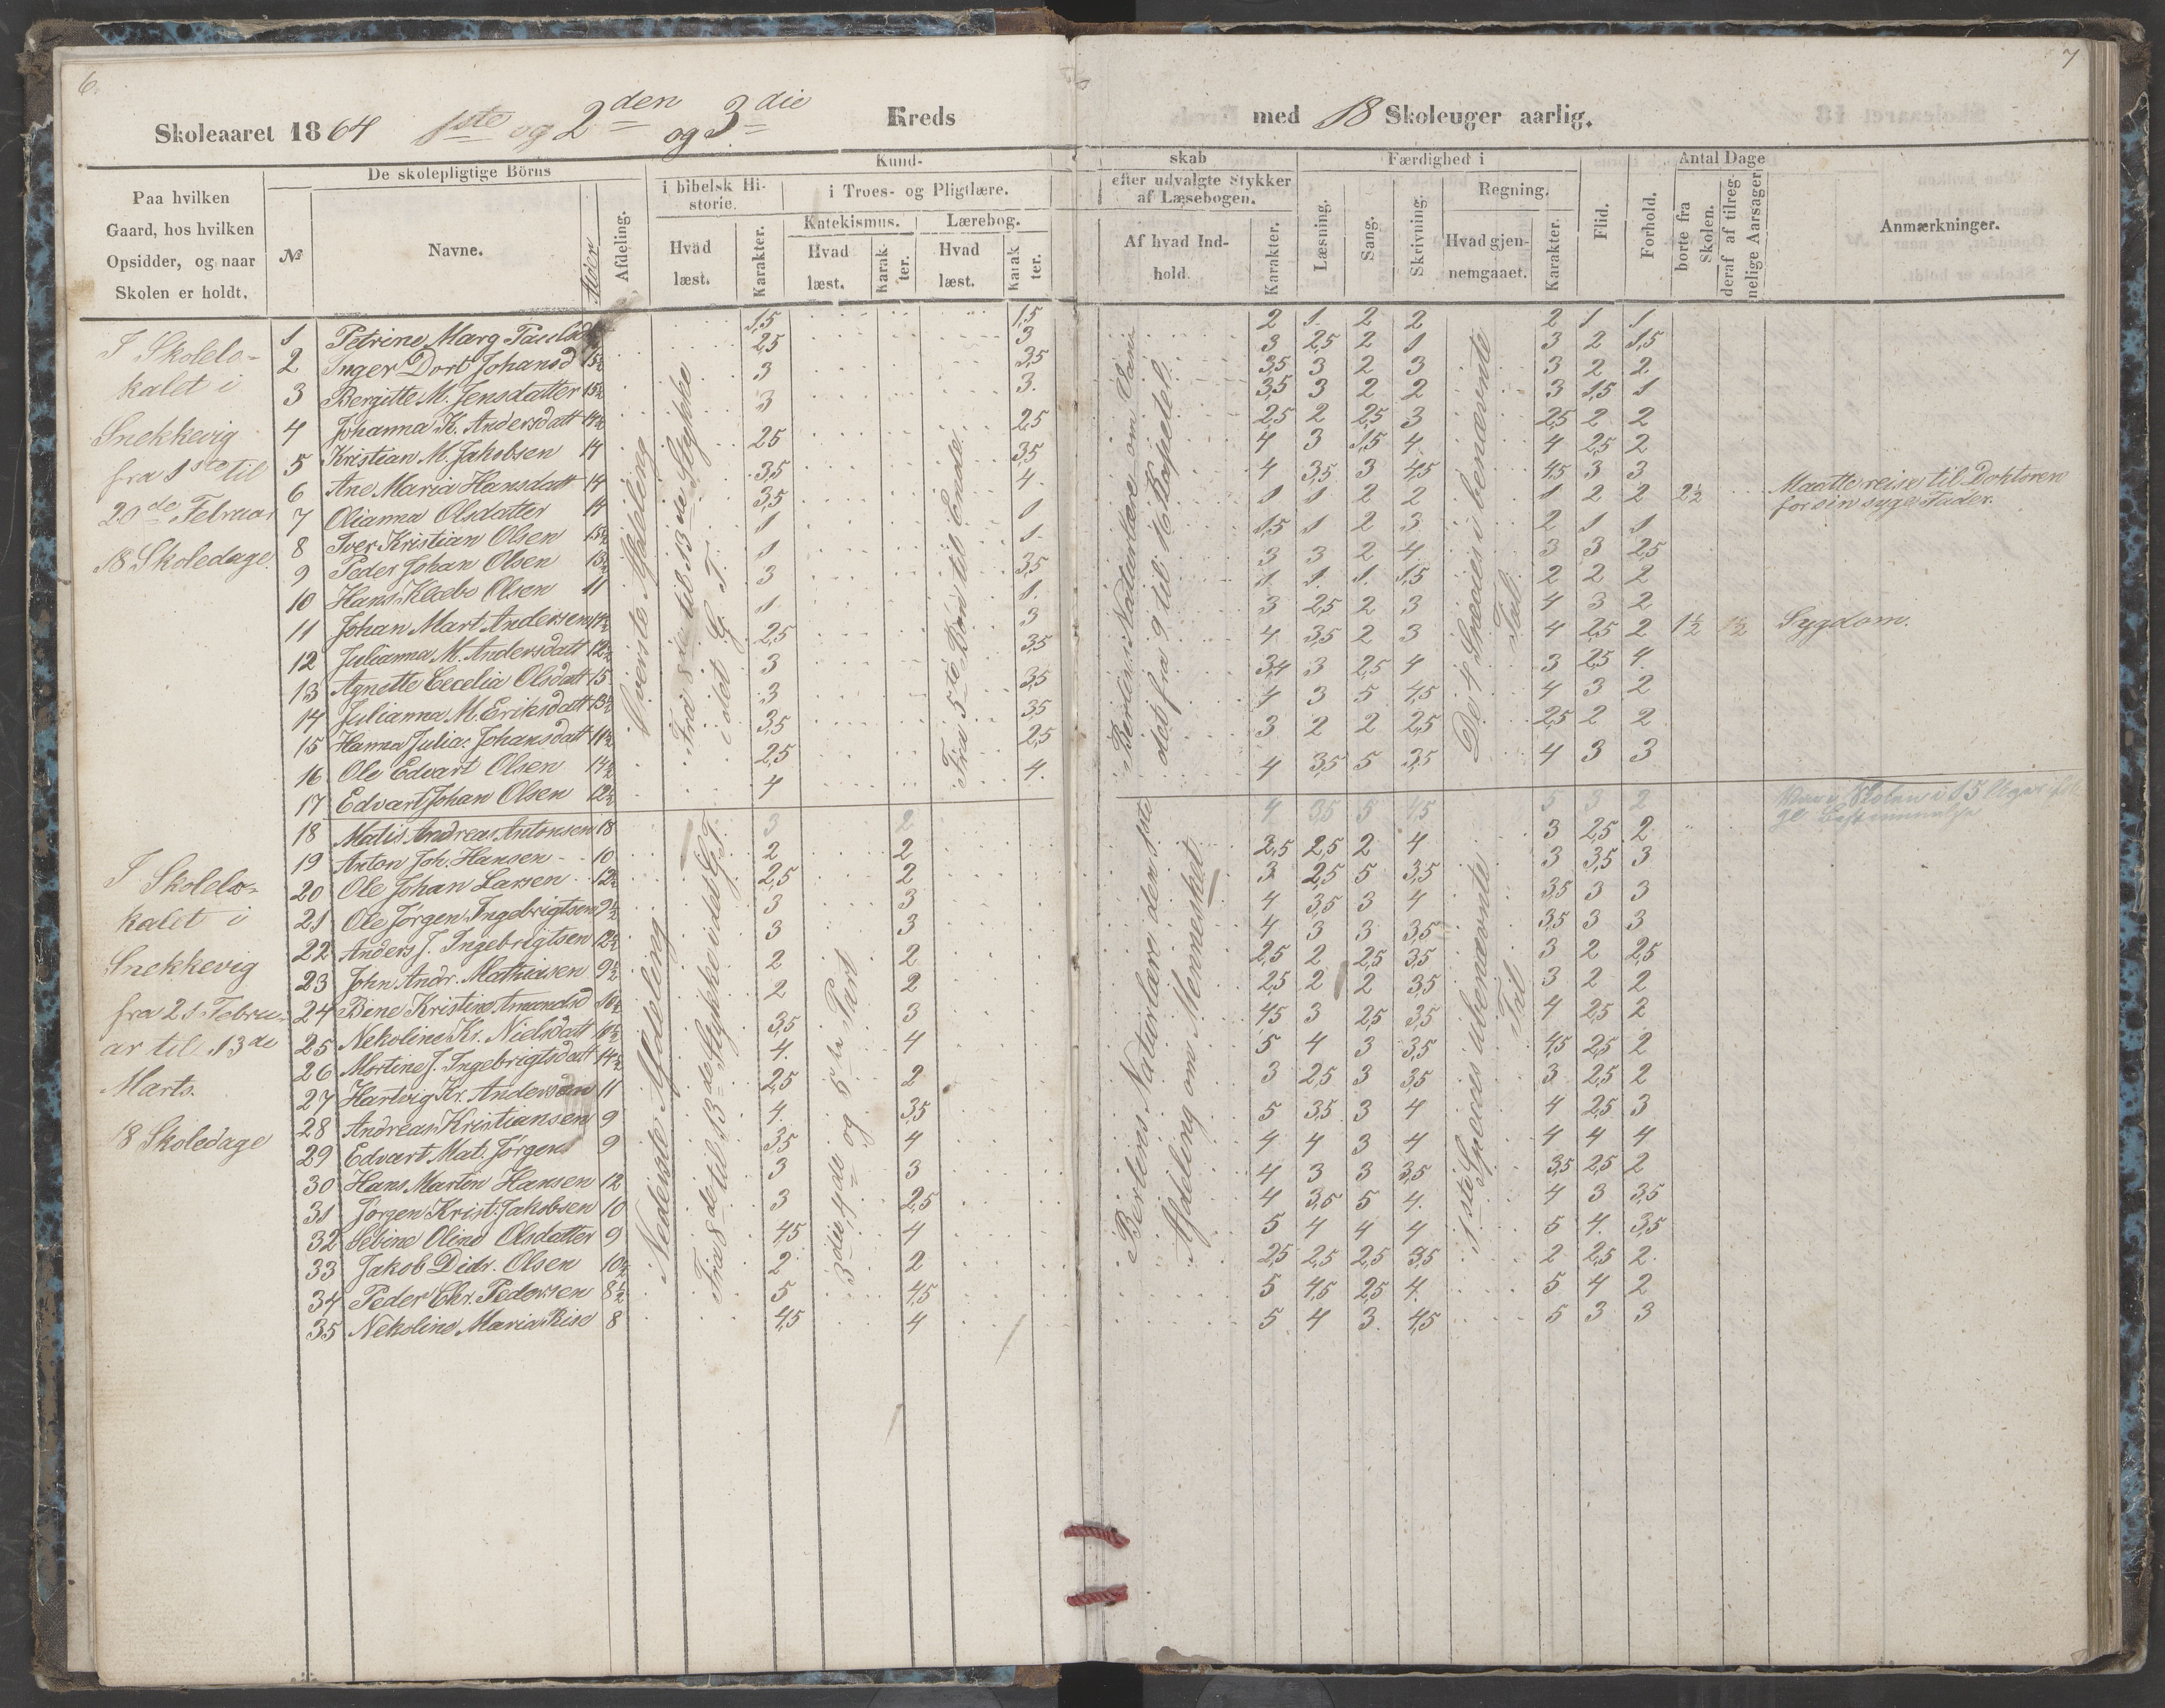 6.
7
Skoleaaret 1864 1ste og 2den og 3die Kreds
med 18 Skoleuger aarlig.
Paa hvilken Gaard, hos hvilken Opsidder, og naar Skolen er holdt.
De skolepligtige Börns
№
Navne.
Alder
Afdeling.
Kund-
i bibelsk Hi-
storie.
Hvad læst.
Karakter.
i Troes- og Pligtlære.
Katekismus.
Hvad læst.
Karak ter.
Lærebog.
Hvad læst.
Karak ter.
skab
efter udvalgte Stykker
af Læsebogen.
Af hvad Ind-
hold.
Karakter.
Færdighed i
Læsning.
Sang.
Skrivning.
Regning.
Hvad gjen-
nemgaaet.
Karakter.
Flid.
Forhold.
Antal Dage
borte fra Skolen.
deraf af tilreg-
nelige Aarsager
Anmærkninger.
I Skolelo-
kalet i
Snekkevig
fra 1ste til
20de Februar
18 Skoledage.
Överste Afdeling
Fra 8de til 13de Stykke
i det G. T.
Fra 5te Bön til Ende
Berlins Naturlære om
det fra 9 til 16 Kapetel.
De 4 Species i benævnte
Tal
1 Petrine Marg. Paulsd 1,5 1,5 2 1. 2 2 2 1 1
2 Inger Dort Johansd 15½ 2,5 3 3 2,5 2 1 3 2 1,5
3 Bergitte M. Jensdatter 15½ 3 3,5 3,5 3 2 3 3 2 2
4 Johanna K. Andersdatt 14½ 3 3. 3,5 3 2 2 3 1,5 1
5 Kristian M. Jakobsen 14 2,5 2,5 2,5 2 2,5 3 2,5 2 2
6 Ane Maria Hansdatt 14 3,5 3,5 4 3 1,5 4 4 2,5 2
7 Olianna Olsdatter 14 3,5 4. 4 3,5 3 4,5 4,5 3 3
8 Iver Kristian Olsen 15½ 1 1 1 1 2 2 1 2 2 2½ Maatte reise til Doktoren
for sin syge Fader.
9 Peder Johan Olsen 13½ 1 1. 1,5 1 2 3 2 1 1
10 Hans Klæbo Olsen 11 3 3,5 3 3 2 4 3 3 2,5
11 Johan Mart. Andersen 14½ 1 1. 1. 1. 1. 1,5 2 2 2
12 Julianna M. Andersdatt 12½ 2,5 3 3 2,5 2 3 4 3 2
13 Agnette Cecelia Olsdatt 15 3 3,5 4 3,5 2 3 4 2,5 2 1½ 1½ Sygdom.
14 Julianna M. Eriksdatt 13½ 3 3,5 3,4 3 2,5 4 3 2,5 4.
15 Hanna Julia. Johansdatt 11½ 3,5 3,5 4 3 5 4,5 4 3 2
16 Ole Edvart Olsen 14½ 2,5 2,5 3 2 2 2,5 2,5 2 2
17 Edvart Johan Olsen 12½ 4 4. 4 3,5 5 3,5 4 3 3
I Skolelo-
kalet i
Snekkevig
fra 21 Febru-
ar til 13de
Marts.
18 Skoledage
Nederste Afdeling
Fra 8de til 13de Stykke i det G. T.
3die, 4de og 5te Part
Berlins Naturlære den 1ste
Afdeling om Mennesket
1ste Species i ubenævnte
Tal
18 Matis Andreas Antonsen 18 3 2 4 3,5 5 4,5 5 3 2
19 Anton Joh. Hansen 10 2 2 2,5 2,5 2 4 3 2,5 2
20 Ole Johan Larsen 12½ 2,5 2 3 2,5 5 3,5 3 3,5 3
21 Ole Jørgen Ingebrigtsen 9½ 3 3 4 3,5 3 4 3,5 3 3
22 Anders J. Ingebrigtsen 12½ 3 3 4 3 3 3,5 3,5 3 3
23 John Andr. Mathisen 9½ 2 2 2,5 2 2,5 3,5 3 2 2,5
24 Bine Kristine Amundsd 10½ 2 2 2,5 2 2 3,5 3 2 2
25 Nekoline Kr. Nielsdatt 10½ 3,5 3 4,5 3 2,5 3,5 4 2,5 2
26 Mortine J. Ingebrigtsdatt 14½ 4. 4 5 4 3 3,5 4,5 2,5 2
27 Hartvig Kr. Andersen 11 2,5 2 3 2,5 3 3,5 3 2,5 2
28 Andreas Kristiansen 9 4. 3,5 5 3,5 3 4 4 2,5 3
29 Edvart Mat. Jørgens 9 3,5 4 4 4 3 4 4 4 4
30 Hans Marton Hansen 12 3 3 4 3 3 3,5 3,5 2,5 2
31 Jørgen Krist. Jakobsen 10 3 2,5 4 3,5 5 4. 4 3 3,5
32 Sebine Oline Olsdatter 9 4,5 4 5 4 4 4 5 4. 3,5
33 Jakob Didr. Olsen 10½ 2 2 2,5 2,5 2,5 3,5 2 2,5 2.
34 Peder Chr. Pedersen 8½ 5 4,5 5 4,5 2,5 4. 5 4 2
35 Nekoline Maria Rise 8 4,5 4 5 4 3 4,5 5 3 3